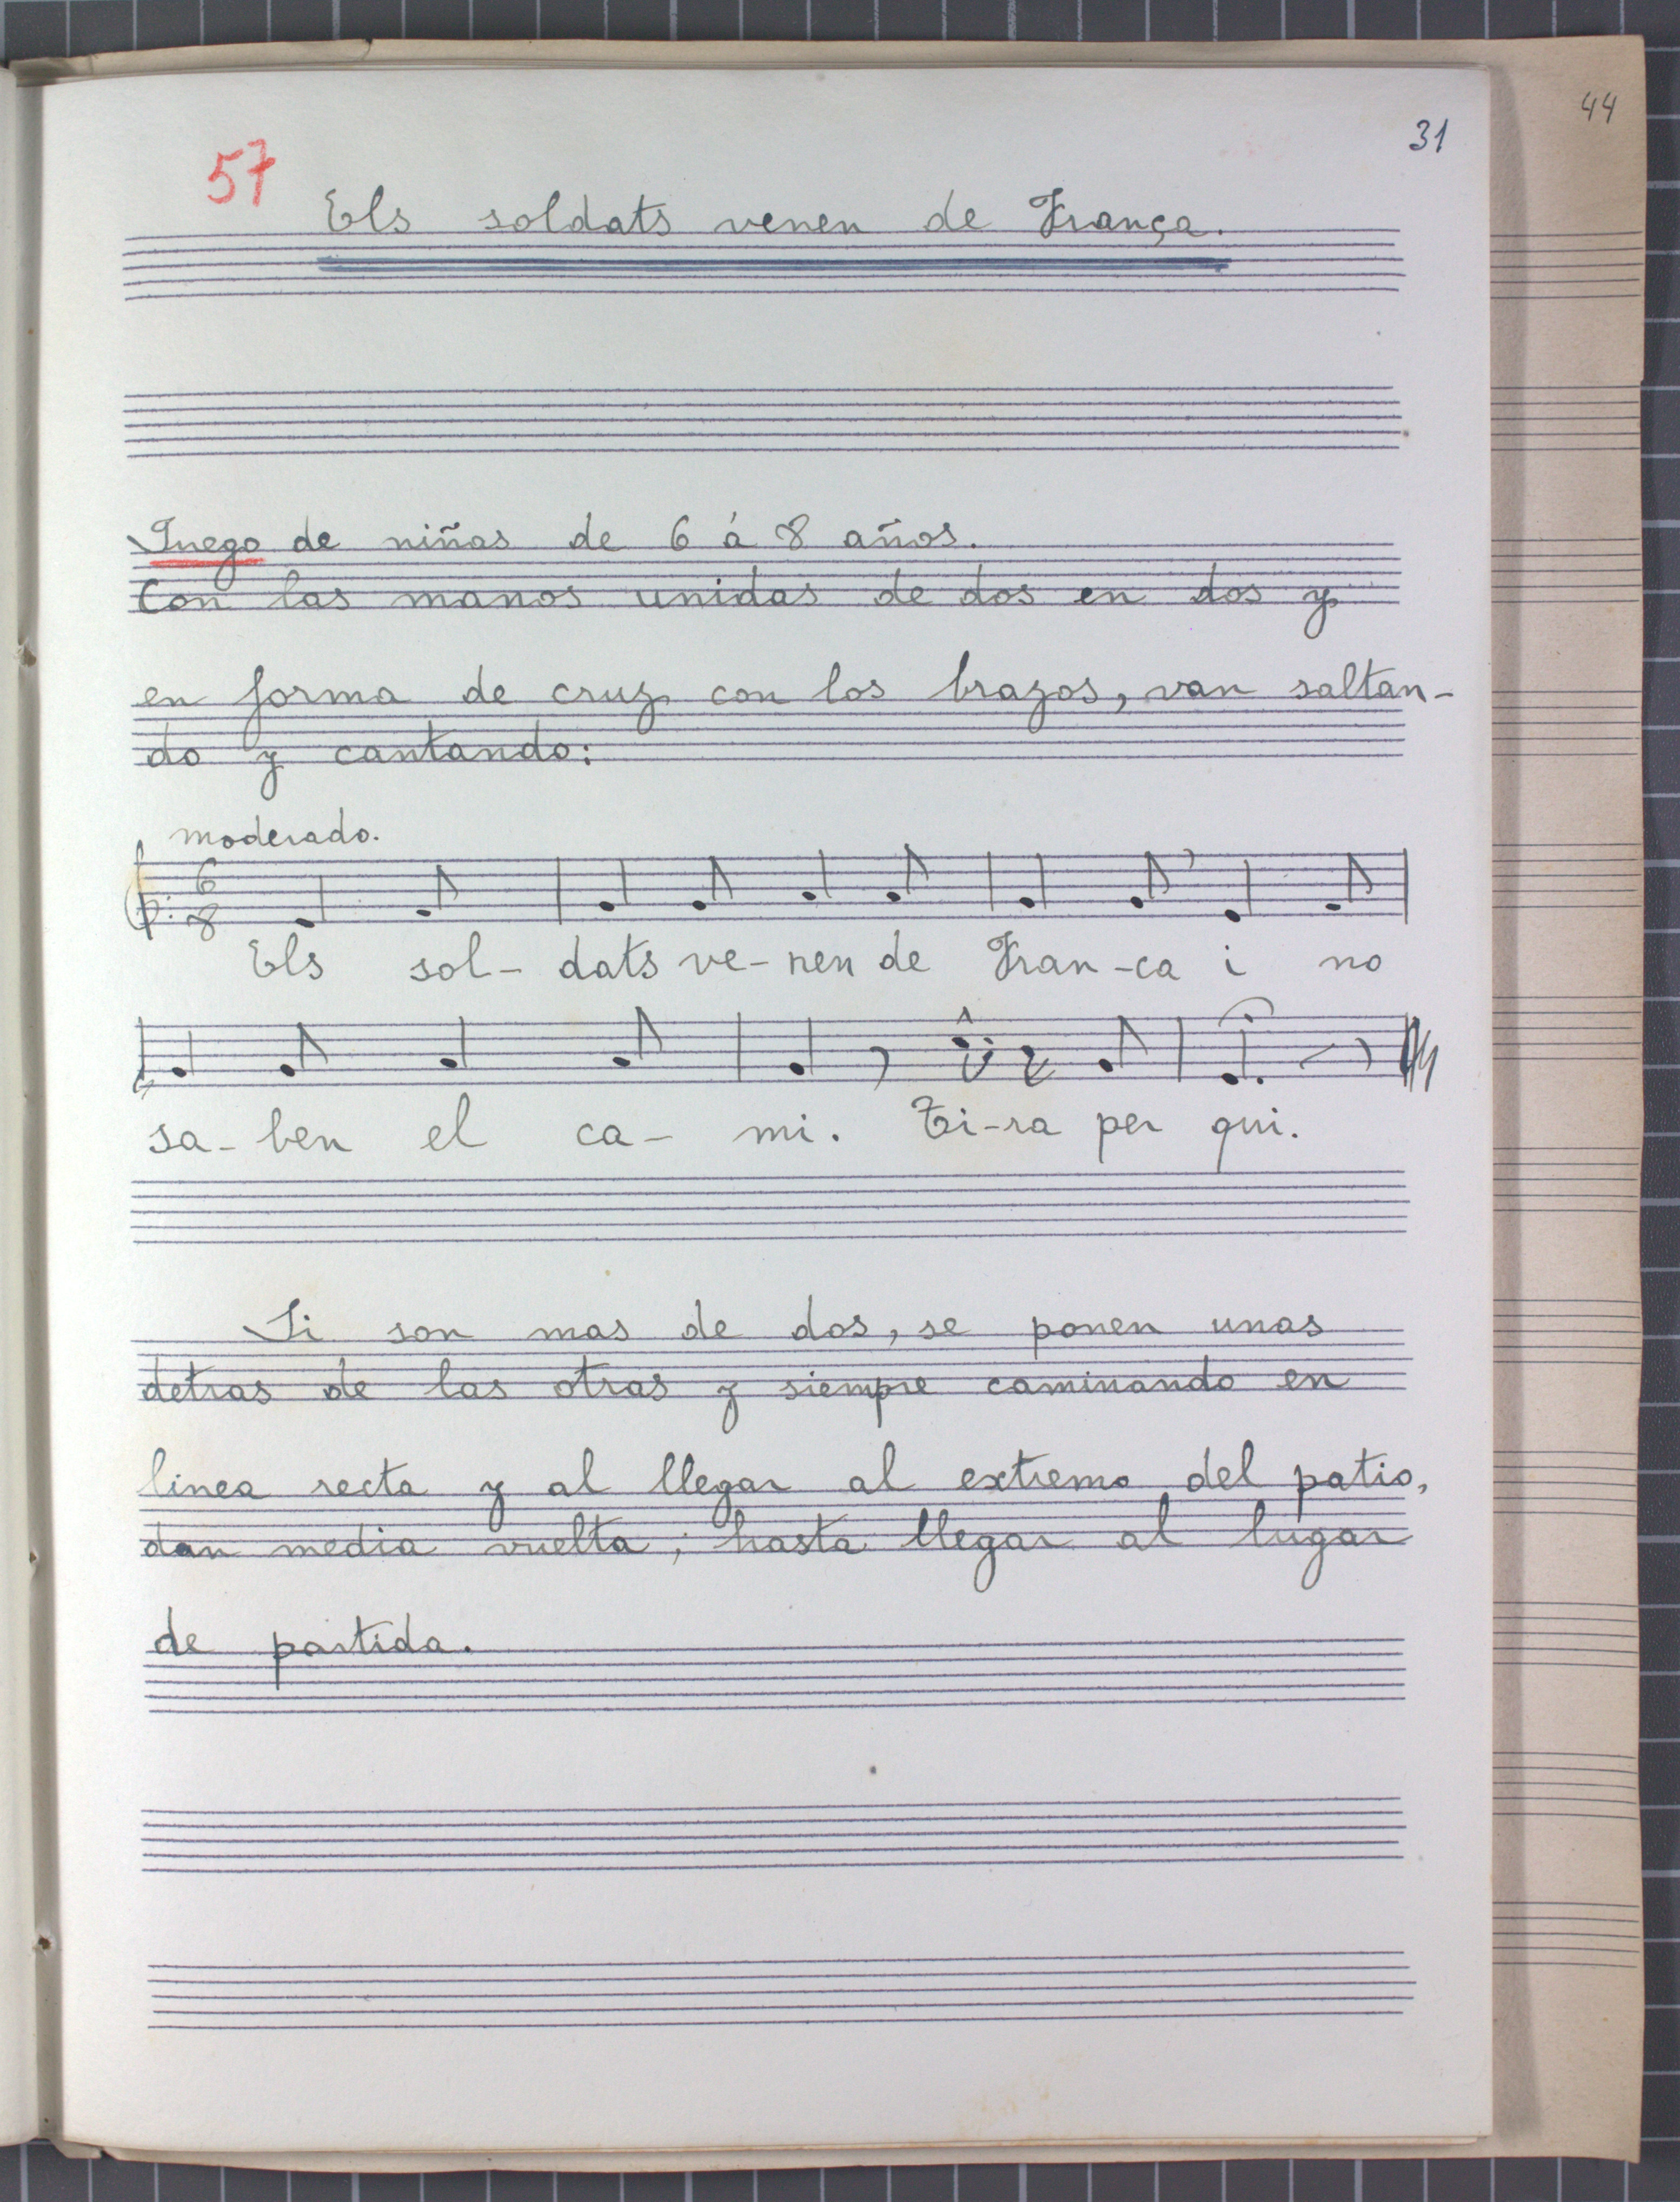 44
31
57
Els soldats venen de França.
Juego de niñas de 6 á 8 años.
Con las manos unidas de dos en dos y
en forma de cruz con los brazos, van saltan-
do y cantando:
moderado.
6
8
Els sol- dats ve-nen de Fran-ca i no
sa- ben el ca- mi. Ti-ra per qui.
Si son mas de dos, se ponen unas
detras de las otras y siempre caminando en
linea recta y al llegar al extremo del patio,
dan media vuelta, hasta llegar al lugar
de partida.